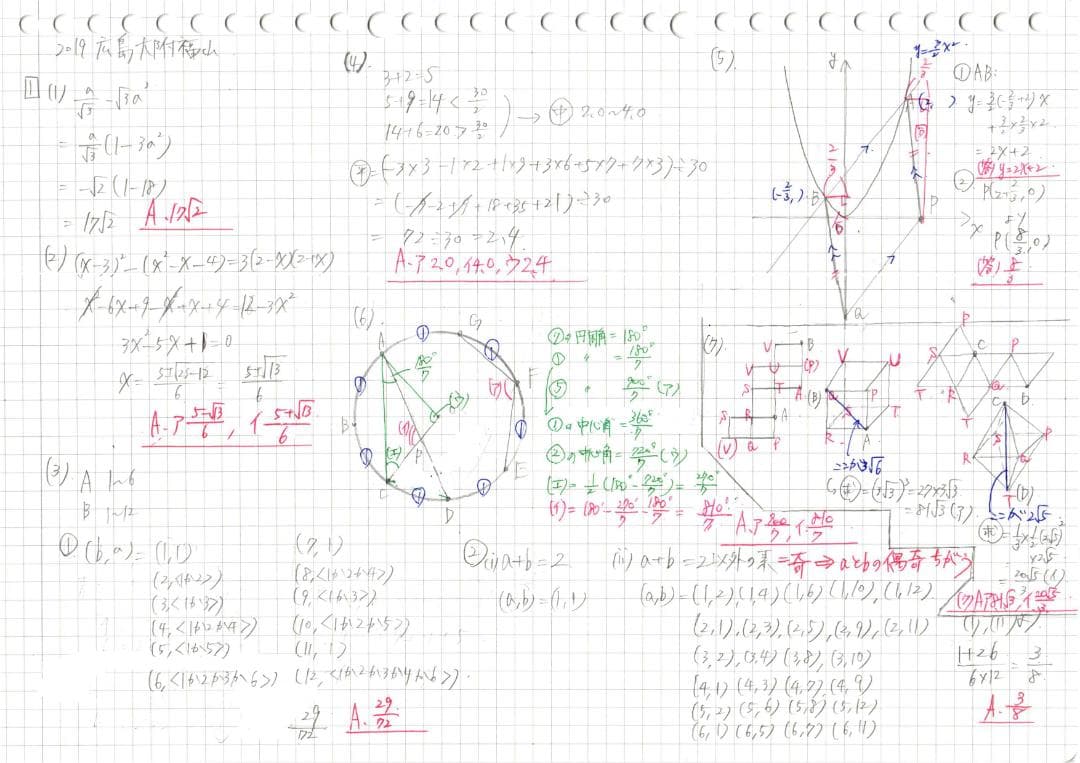 2019 広島大附福山
1 (1) a/√3 - √3a³
= a/√3 (1-3a²)
= -√2 (1-18)
= 17√2 A. 17√2
(2) (x-3)² - (x²-x-4) = 3(2-x)(2+x)
x²-6x+9-x²+x+4 = 12-3x²
3x²-5x+1=0
x = 5±√25-12/6 = 5±√13/6
A. ア 5-√13/6, イ 5+√13/6
(3) A 1~6
B 1~12
① (b,a) = (1,1)
(2,<1か2>)
(3,<1か3>)
(4,<1か2か4>)
(5,<1か5>)
(6,<1か2か3か6>)
(7,1)
(8,<1か2か4>)
(9,<1か3>)
(10,<1か2か5>)
(11,1)
(12,<1か2か3か4か6>)
29/72 A. 29/72
(4).
3+2=5
5+9=14 < 30/2
14+6=20 > 30/2
→ 中 2.0~4.0
平 = (-3×3-1×2+1×9+3×6+5×7+7×3)÷30
= (-9-2+9+18+35+21)÷30
= 72÷30=2.4
A. ア 2.0, イ 4.0, ウ 2.4
(5).
y
y=3/2x²
2/3
A
(-2/3, ) B
2/3
6
P
x
Q
① AB:
y=3/2(-2/3+2)x
+3/2×2/3×2
= 2x+2
(答) y=2x+2
② P(2+2/3, 0)
より
P(8/3, 0)
(答) 8/3
(6).
A
B
C
D
E
F
G
P
180°/7
(ア)
(イ)
(ウ)
(エ)
⑦の円周角 = 180°
① 〃 = 180°/7
⑤ 〃 = 900°/7 (ア)
①の中心角 = 360°/7
②の中心角 = 720°/7 (ウ)
(エ) = 1/2 (180° - 720°/7) = 270°/7
(イ) = 180° - 270°/7 - 180°/7 = 810°/7
A. ア 900/7, イ 810/7
(7).
V B
V U (P)
S T A (B)
S R A
(V) Q P
V U
Q P
T
R A
=2が3√6
(求) = (3√3)³ = 27×3√3
= 81√3 (ア)
P
S C P
T R Q D
T
C
S P
R Q
T (D)
=2が2√5
(求) = 1/3×1/2(2√5)²
×2√5
= 20√5/3 (イ)
(7) A. ア 81√3, イ 20√5/3
② (i) a+b=2
(a,b) = (1,1)
(ii) a+b=2以外の素=奇 ⇒ aとbの偶奇ちがう
(a,b) = (1,2),(1,4),(1,6),(1,10),(1,12)
(2,1),(2,3),(2,5),(2,9),(2,11)
(3,2),(3,4),(3,8),(3,10)
(4,1)(4,3)(4,7)(4,9)
(5,2)(5,6)(5,8)(5,12)
(6,1)(6,5)(6,7)(6,11)
(i),(ii)より
1+26/6×12 = 3/8
A. 3/8